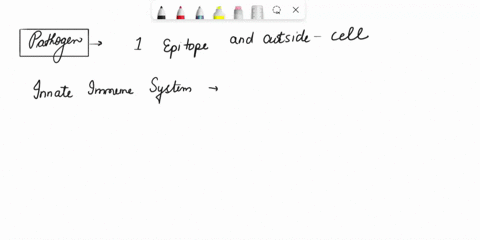 Pathogen → 1 Epitope and outside - cell
Innate Immune System →